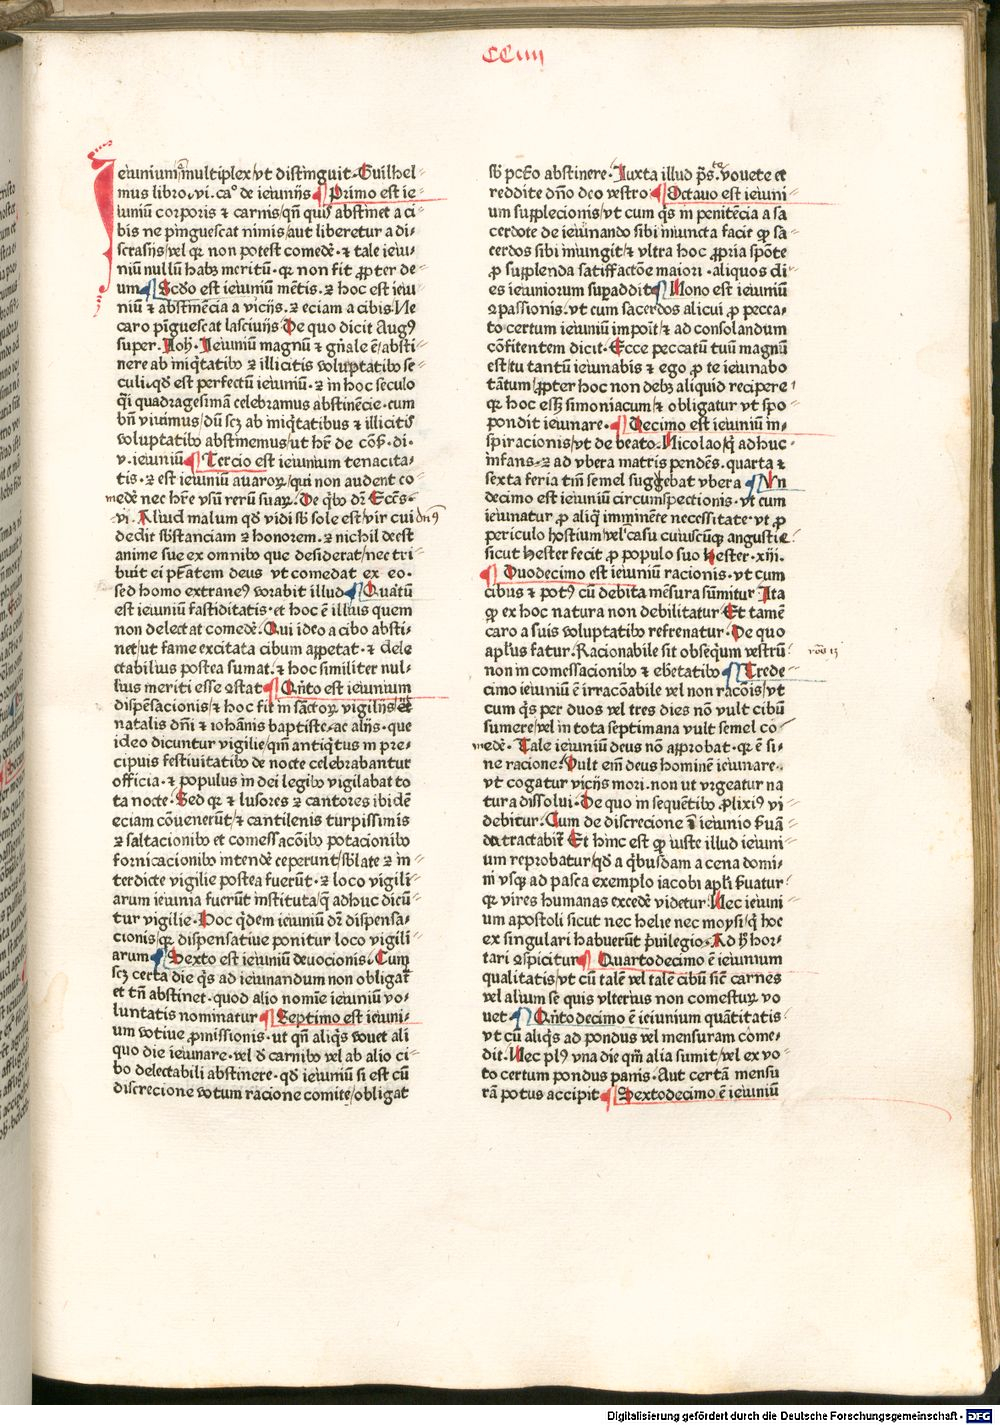 CCiiii
Ieiunium multiplex/vt distinguit. Guilhel⸗
mus libro.vi. ca⁰ de ieiunijs Primo est ie⸗
iuniū corporis ⁊ carnis/qn̄ quis abstinet a ci⸗
bis ne pinguescat nimis/aut liberetur a di⸗
scrasijs/vel qꝛ non potest comedē. ⁊ tale ieiu⸗
niū nullū habꝫ meritū. qꝛ non fit ꝓpter de⸗
um Scd̄o est ieiuniū mētis. ⁊ hoc est ieiu⸗
niū ⁊ abstinēcia a vicijs. ⁊ eciam a cibis. Ne
caro pīguescat lasciuijs De quo dicit Augꝰ
super. Ioh̄. Ieiuniū magnū ⁊ gn̄ale ē/absti⸗
nere ab iniqͥtatibꝰ ⁊ illicitis voluptatibꝰ se⸗
culi. qd̄ est perfectū ieiuniū. ⁊ in hoc seculo
qͣsi quadragesimā celebramus abstinēcie. cum
bn̄ viuimus/dū scꝫ ab iniqͥtatibus ⁊ illicitis
voluptatibꝰ abstinemus/ut hr̄ de cōs̄. di.
v. ieiuniū Tercio est ieiunium tenacita⸗
tis. ⁊ est ieiuniū auaroꝝ/qui non audent co⸗
medē nec hr̄e vsū rerū suaꝝ. De qͥbꝰ dr̄ Eccēs.
vi. Aliud malum qd̄ vidi sb̄ sole est/vir cui dn̄ꝰ
dedit sb̄stanciam ⁊ honorem. ⁊ nichil deest
anime sue ex omnibꝰ que desiderat/nec tri⸗
buit ei ptātem deus vt comedat ex eo.
sed homo extraneꝰ vorabit illud Quartū
est ieiuniū fastiditatis. et hoc ē illius quem
non delectat comedē. Qui ideo a cibo absti⸗
net/ut fame excitata cibum appetat. ⁊ dele
ctabilius postea sumat. ⁊ hoc similiter nul⸗
lius meriti esse ꝯstat Qn̄to est ieiunium
dispēsacionis/⁊ hoc fit in sāctoꝝ vigilijs/et
natalis dn̄i ⁊ iohānis baptiste. ac alijs. que
ideo dicuntur vigilie/qm̄ antiqͥtus in pre⸗
cipuis festiuitatibꝰ de nocte celebrabantur
officia. ⁊ populus in dei legibꝰ vigilabat to
ta nocte. Sed qꝛ ⁊ lusores ⁊ cantores ibidē
eciam cōuenerūt/⁊ cantilenis turpissimis
⁊ saltacionibꝰ et comessacōibꝰ potacionibꝰ
fornicacionibꝰ intendē ceperunt/sb̄late ⁊ in⸗
terdicte vigilie postea fuerūt. ⁊ loco vigili⸗
arum ieiunia fuerūt instituta/qͣ adhuc dicū⸗
tur vigilie. Hoc qͥdem ieiuniū dr̄ dispensa⸗
cionis/qꝛ dispensatiue ponitur loco vigili⸗
arum Sexto est ieiuniū deuocionis. Cum
scꝫ certa die qͥs ad ieiunandum non obligat̄
et tn̄ abstinet. quod alio nomīe ieiuniū vo⸗
luntatis nominatur Septimo est ieiuni⸗
um votiue ꝓmissionis. ut qn̄ aliqͥs vouet ali
quo die ieiunare. vel d̄ carnibꝰ vel ab alio ci⸗
bo delectabili abstinere. qd̄ ieiuniū si est cū
discrecione votum racione comite/obligat
sb̄ pctō abstinere. Iuxta illud ps̄. vouete et
reddite dn̄o deo vestro Octauo est ieiuni⸗
um supplecionis/vt cum qͥs in penitēcia a sa
cerdote de ieiunando sibi iniuncta facit qꝫ sa⸗
cerdos sibi iniungit/⁊ vltra hoc ꝓpria spōte
ꝓ supplenda satiffactōe maiori. aliquos di⸗
es ieiuniorum supaddit Nono est ieiuniū
ꝯpassionis. vt cum sacerdos alicui ꝓ pecca⸗
to certum ieiuniū imponit/⁊ ad consolandum
cōfitentem dicit. Ecce peccatū tuū magnū
est/tu tantū ieiunabis ⁊ ego ꝓ te ieiunabo
tātum/ꝓpter hoc non debꝫ aliquid recipere
qꝛ hoc esset simoniacum/⁊ obligatur vt spo⸗
pondit ieiunare. Decimo est ieiuniū in⸗
spiracionis/vt de beato. Nicolao/qͥ ad huc
infans. ⁊ ad vbera matris pendēs. quarta ⁊
sexta feria tm̄ semel suggebat vbera Un
decimo est ieiuniū circumspectionis. vt cum
ieiunatur ꝓ aliqͣ imminēte necessitate. vt ꝓ
periculo hostium/vel casu cuiuscūqꝫ angustie.
sicut Hester fecit ꝓ populo suo Hester. xiii.
Duodecimo est ieiuniū racionis. vt cum
cibus ⁊ potꝰ cū debita mēsura sumitur. Ita
qꝫ ex hoc natura non debilitatur Et tamē
caro a suis voluptatibꝰ refrenatur. De quo
apl̄us fatur. Racionabile sit obsequm vestrū
non in comessacionibꝰ ⁊ ebetatibꝰ Trede⸗
cimo ieiuniū ē irracōabile vel non racōis/vt
cum qͥs per duos vel tres dies nō vult cibū
sumere/vel in tota septimana vult semel co⸗
medē. Tale ieiuniū deus nō approbat. qꝛ ē si⸗
ne racione. Vult eim̄ deus hominē ieiunare.
vt cogatur vicijs mori. non ut vrgeatur na
tura dissolui. De quo in sequētibꝰ ꝓlixiꝰ vi⸗
debitur. Cum de discrecione ī ieiunio s̄uā⸗
da tractabit̄ Et hinc est qꝫ iuste illud ieiuni⸗
um reprobatur/qd̄ a qͥbusdam a cena domi⸗
ni vsqꝫ ad pasca exemplo iacobi apl̄i s̄uatur
qꝛ vires humanas excedē videtur. Nec ieiuni
um apostoli sicut nec helie nec moysi/qͥ hoc
ex singulari habuerūt pͥuilegio. Ad hͦ hor⸗
tari ꝯspicitur Quartodecimo ē ieiunium
qualitatis/vt cū talē vel talē cibū siē carnes
vel alium se quis vlterius non comesturꝝ vo
uet Qn̄todecimo ē ieiunium quātitatis
vt cū aliqͥs ad pondus vel mensuram come⸗
dit. Nec plꝰ vna die qm̄ alia sumit/vel ex vo⸗
to certum pondus panis. Aut certā mensu
rā potus accipit Sextodecimo ē ieiuniū
Digitalisierung gefördert durch die Deutsche Forschungsgemeinschaft - DFG